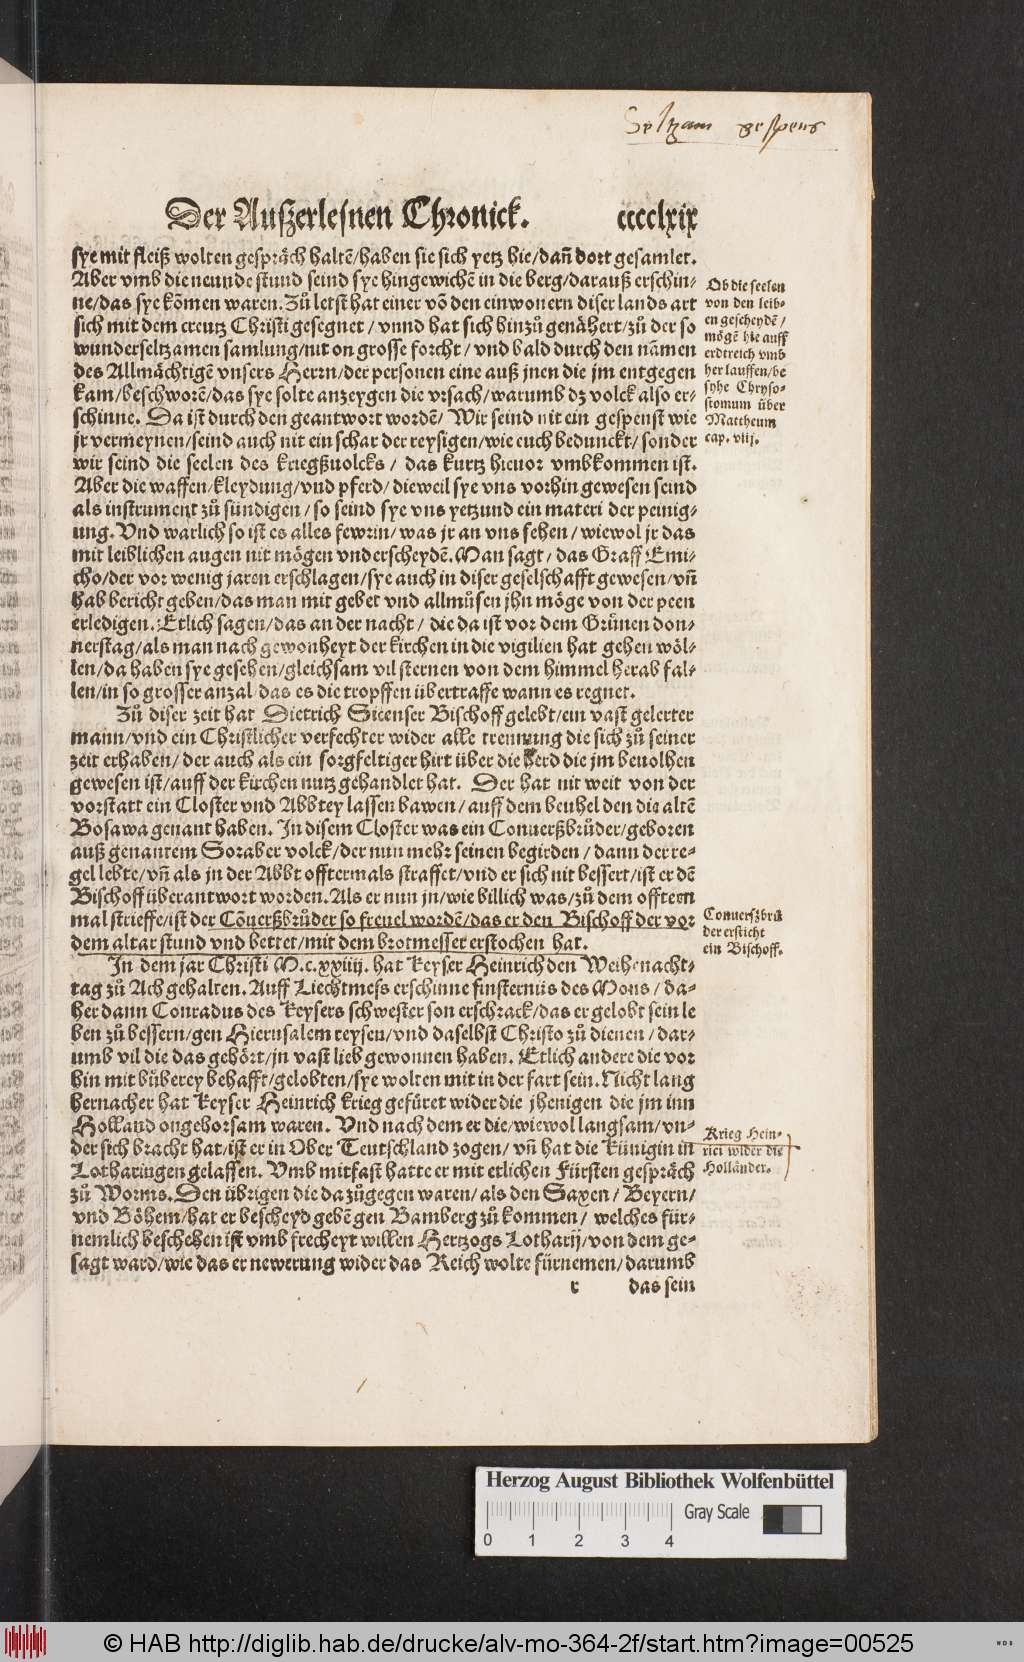 Seltzam gespens
Der Außerlesnen Chronick. cccclxix
sye mit fleiß wolten gespräch haltē/haben sie sich yetz hie/dañ dort gesamlet.
Aber vmb die neunde stund seind sye hingewichē in die berg/darauß erschin-
ne/das sye kōmen waren. Zů letst hat einer vō den einwonern diser lands art
sich mit dem creutz Christi gesegnet/vnnd hat sich hinzů genähert/zů der so
wunderseltzamen samlung/nit on grosse forcht/vnd bald durch den nāmen
des Allmächtigē vnsers Herrn/der personen eine auß jnen die jm entgegen
kam/beschworē/das sye solte anzeygen die vrsach/warumb dz volck also er-
schinne. Da ist durch den geantwort wordē/Wir seind nit ein gespenst wie
jr vermeynen/seind auch nit ein schar der reysigen/wie euch bedunckt/sonder
wir seind die seelen des kriegßuolcks/das kurtz hieuor vmbkommen ist.
Aber die waffen/kleydung/vnd pferd/dieweil sye vns vorhin gewesen seind
als instrument zů sündigen/so seind sye vns yetzund ein materi der peinig-
ung. Vnd warlich so ist es alles fewrin/was jr an vns sehen/wiewol jr das
mit leiblichen augen nit mögen vnderscheydē. Man sagt/das Graff Emi-
cho/der vor wenig jaren erschlagen/sye auch in diser geselschafft gewesen/vñ
hab bericht geben/das man mit gebet vnd allmůsen jhn möge von der peen
erledigen. Etlich sagen/das an der nacht/die da ist vor dem Grünen don-
nerstag/als man nach gewonheyt der kirchen in die vigilien hat gehen wöl-
len/da haben sye gesehen/gleichsam vil sternen von dem himmel herab fal-
len/in so grosser anzal/das es die tropffen übertraffe wann es regnet.
Zů diser zeit hat Dietrich Sicenser Bischoff gelebt/ein vast gelerter
mann/vnd ein Christlicher verfechter wider alle trennung die sich zů seiner
zeit erhaben/der auch als ein sorgfeltiger hirt über die herd die jm beuolhen
gewesen ist/auff der kirchen nutz gehandlet hat. Der hat nit weit von der
vorstatt ein Closter vnd Abbtey lassen bawen/auff dem beuhel den die altē
Bosawa genant haben. In disem Closter was ein Conuerßbrůder/geboren
auß genantem Soraber volck/der nun mehr seinen begirden/dann der re-
gel lebte/vñ als jn der Abbt offtermals straffet/vnd er sich nit bessert/ist er dē
Bischoff überantwort worden. Als er nun jn/wie billich was/zů dem offtern
mal strieffe/ist der Cōuerßbrůder so freuel wordē/das er den Bischoff der vor
dem altar stund vnd bettet/mit dem brotmesser erstochen hat.
In dem jar Christi M.c.xxiiij. hat Keyser Heinrich den Weihenacht-
tag zů Ach gehalten. Auff Liechtmess erschinne finsternüs des Mons/da-
her dann Conradus des Keysers schwester son erschrack/das er gelobt sein le
ben zů bessern/gen Hierusalem reysen/vnd daselbst Christo zů dienen/dar-
umb vil die das gehört/jn vast lieb gewonnen haben. Etlich andere die vor
hin mit büberey behafft/gelobten/sye wolten mit in der fart sein. Nicht lang
hernacher hat Keyser Heinrich krieg gefüret wider die jhenigen die jm inn
Holland ongehorsam waren. Vnd nach dem er die/wiewol langsam/vn-
der sich bracht hat/ist er in Ober Teutschland zogen/vñ hat die Künigin in
Lotharingen gelassen. Vmb mitfast hatte er mit etlichen Fürsten gespräch
zů Worms. Den übrigen die da zůgegen waren/als den Saxen/Beyern/
vnd Böhem/hat er bescheyd gebē gen Bamberg zů kommen/welches für-
nemlich beschehen ist vmb frecheyt willen Hertzogs Lotharij/von dem ge-
sagt ward/wie das er newerung wider das Reich wolte fürnemen/darumb
r das sein
Ob die seelen
von den leib-
en gescheydē/
mögē hie auff
erdtreich vmb
her lauffen/be
sihe Chryso-
stomum über
Mattheum
cap. viij.
Conuerßbrů
der ersticht
ein Bischoff.
Krieg Hein-
rici wider die
Holländer.
Herzog August Bibliothek Wolfenbüttel
Gray Scale
0 1 2 3 4
© HAB http://diglib.hab.de/drucke/alv-mo-364-2f/start.htm?image=00525